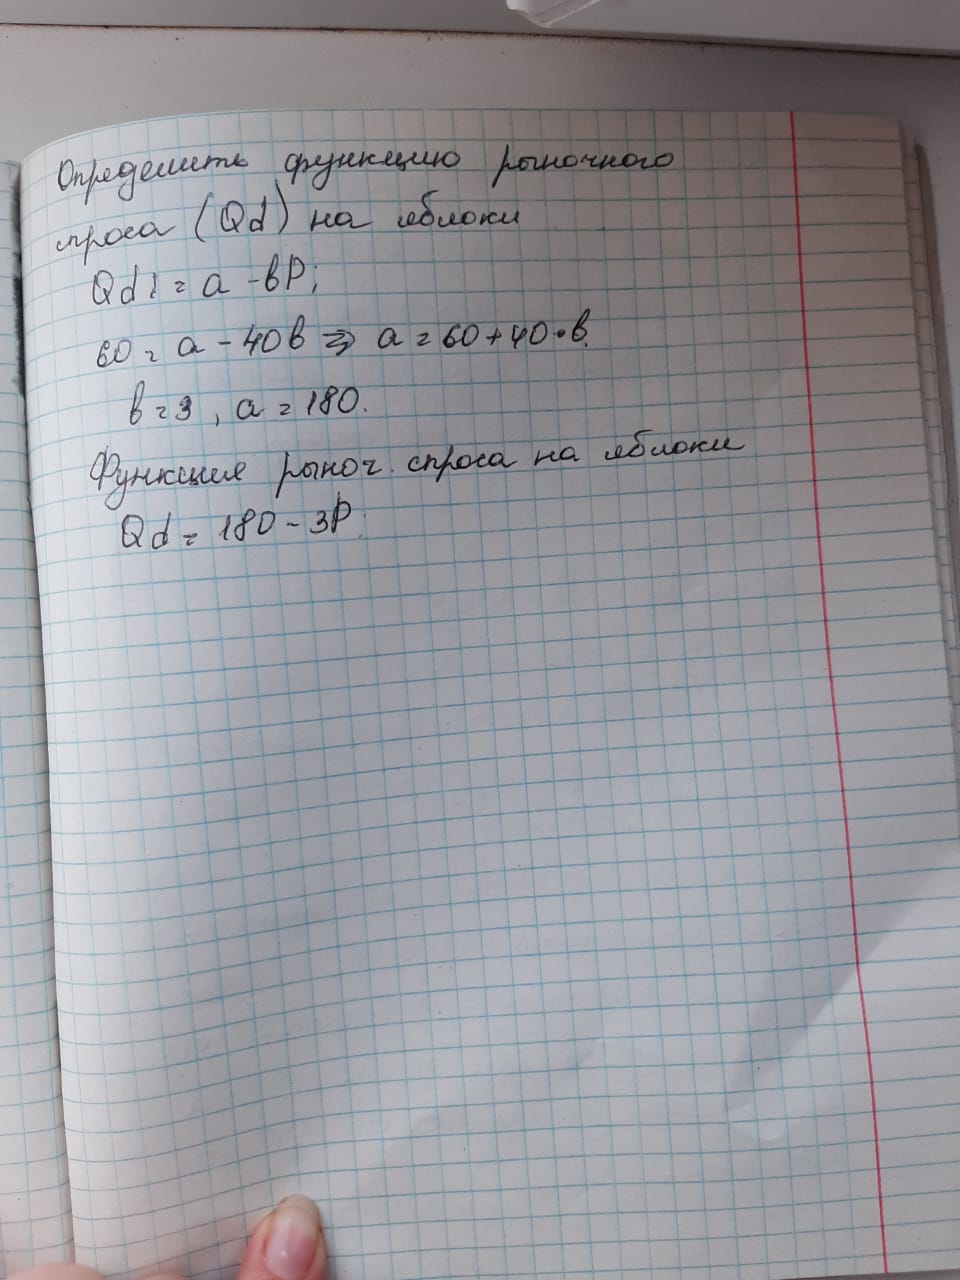 Определить функцию рыночного
спроса (Qd) на яблоки
Qd1 = a - bP;
60 = a - 40b => a = 60 + 40•b.
b = 3, a = 180.
Функция рыноч. спроса на яблоки
Qd = 180 - 3P.